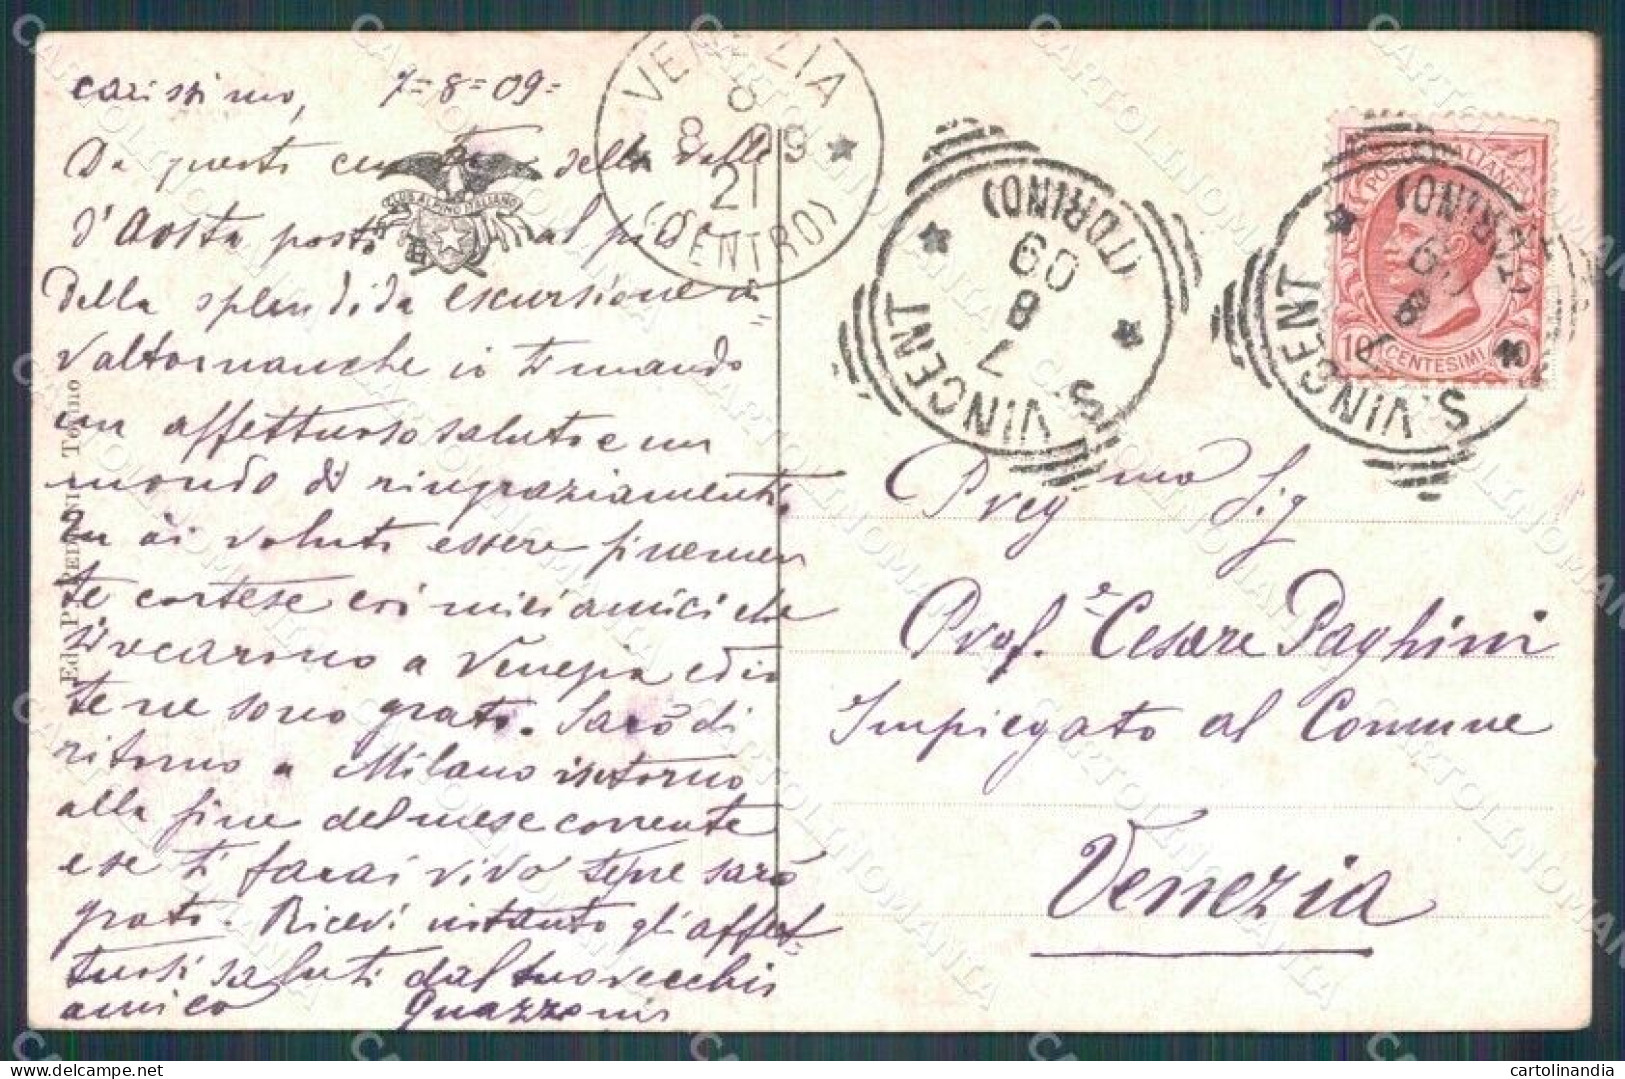 carissimo, 7-8-09-
Da questo della valle
d'Aosta al piè
della splendida escursione a
Valtornanche io ti mando
un affettuoso saluto e un
mondo di ringraziamenti.
Tu ài voluto essere finemen
te cortese coi miei amici che
si recarono a Venezia ed io
te ne sono grato. Sarò di
ritorno a Milano
alla fine del mese corrente
e se ti farai vivo te ne sarò
grato. Ricevi intanto gli affet-
tuosi saluti dal tuo vecchio
amico
CLUB ALPINO ITALIANO
Torino
VENEZIA
8
8 09
21
(CENTRO)
S. VINCENT
(TORINO)
7
8
09
S. VINCENT
(TORINO)
7
8
09
POSTE ITALIANE
10 CENTESIMI 10
Preg mo Sig
Prof.e Cesare Paghini
Impiegato al Comune
Venezia
CARTOLINOMANIA
cartolinandia